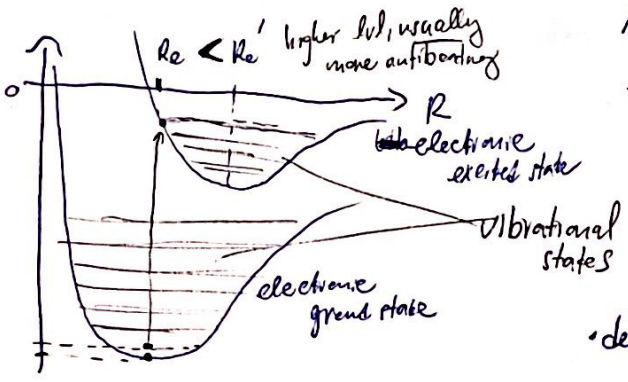 Re < Re' higher lvl, usually
more antibonding
0
R
electronic
excited state
vibrational
states
electronic
ground state
• de